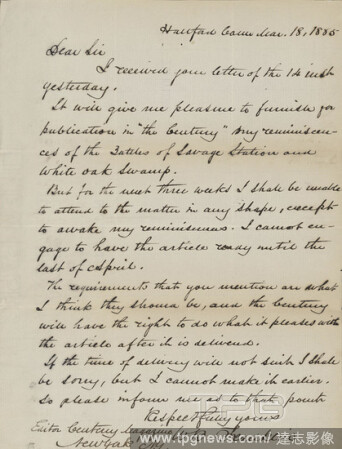 Hartford Conn Mar. 18, 1885
Dear Sir
I received your letter of the 14 inst
yesterday.
It will give me pleasure to furnish for
publication in "the Century" my reminiscen-
ces of the Battles of Savage Station and
White Oak Swamp.
But for the next three weeks I shall be unable
to attend to the matter in any shape, except
to awake my reminiscences. I cannot en-
gage to have the article ready until the
last of April.
The requirements that you mention are what
I think they should be, and the Century
will have the right to do what it pleases with
the article after it is delivered.
If the time of delivery will not suit I shall
be sorry, but I cannot make it earlier.
So please inform me as to that point
Respectfully yours
Editor Century Magazine
New York City
TPG
www.tpgnews.com/達志影像